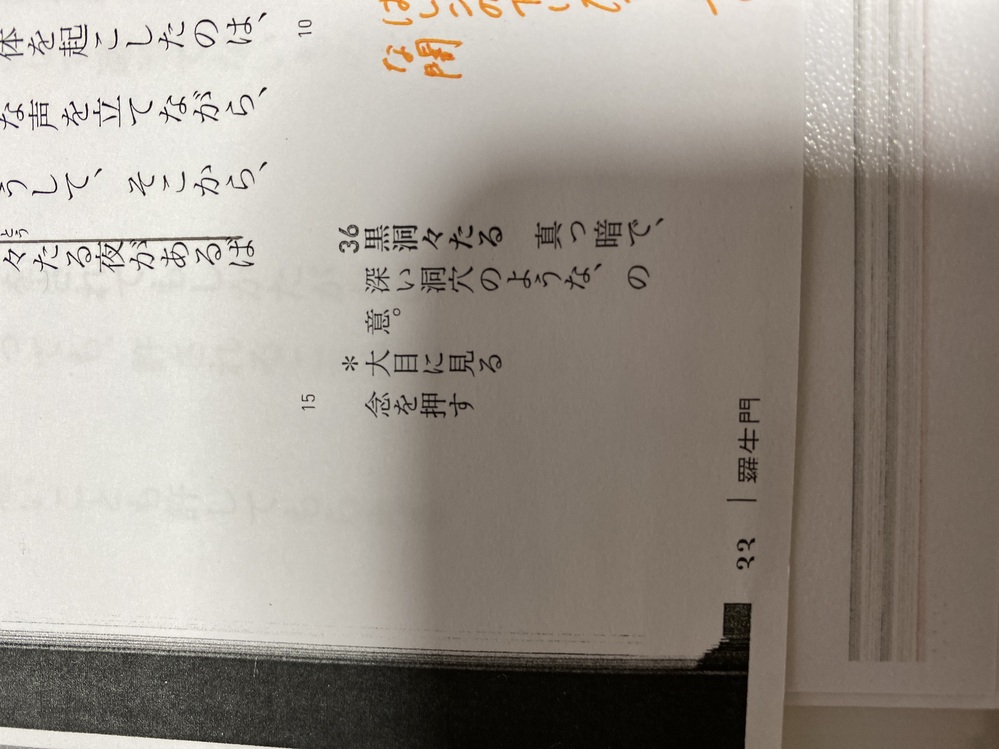 体を起こしたのは、
な声を立てながら、
うして、そこから、
とう
々たる夜があるば
10
な闇
36 黒洞々たる 真っ暗で、
深い洞穴のような、の
意。
*大目に見る
念を押す
15
33 | 羅生門